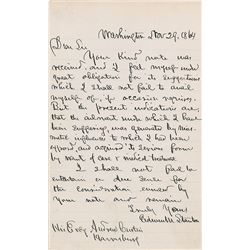 Washington Nov. 29, 1864
Dear Sir
Your kind note was
received, and I feel myself under
great obligation for its suggestions
which I shall not fail to avail
myself of, if occasion requires.
But the present indications are,
that the ailment under which I have
been suffering, was generated by
influences to which I had been
exposed, and acquired its serious form
by want of care &
I shall not fail to
entertain a due sense for
the consideration evinced by
your note and remain
Truly Yours
Edwin M. Stanton
His Excy Andrew Curtin
Harrisburg